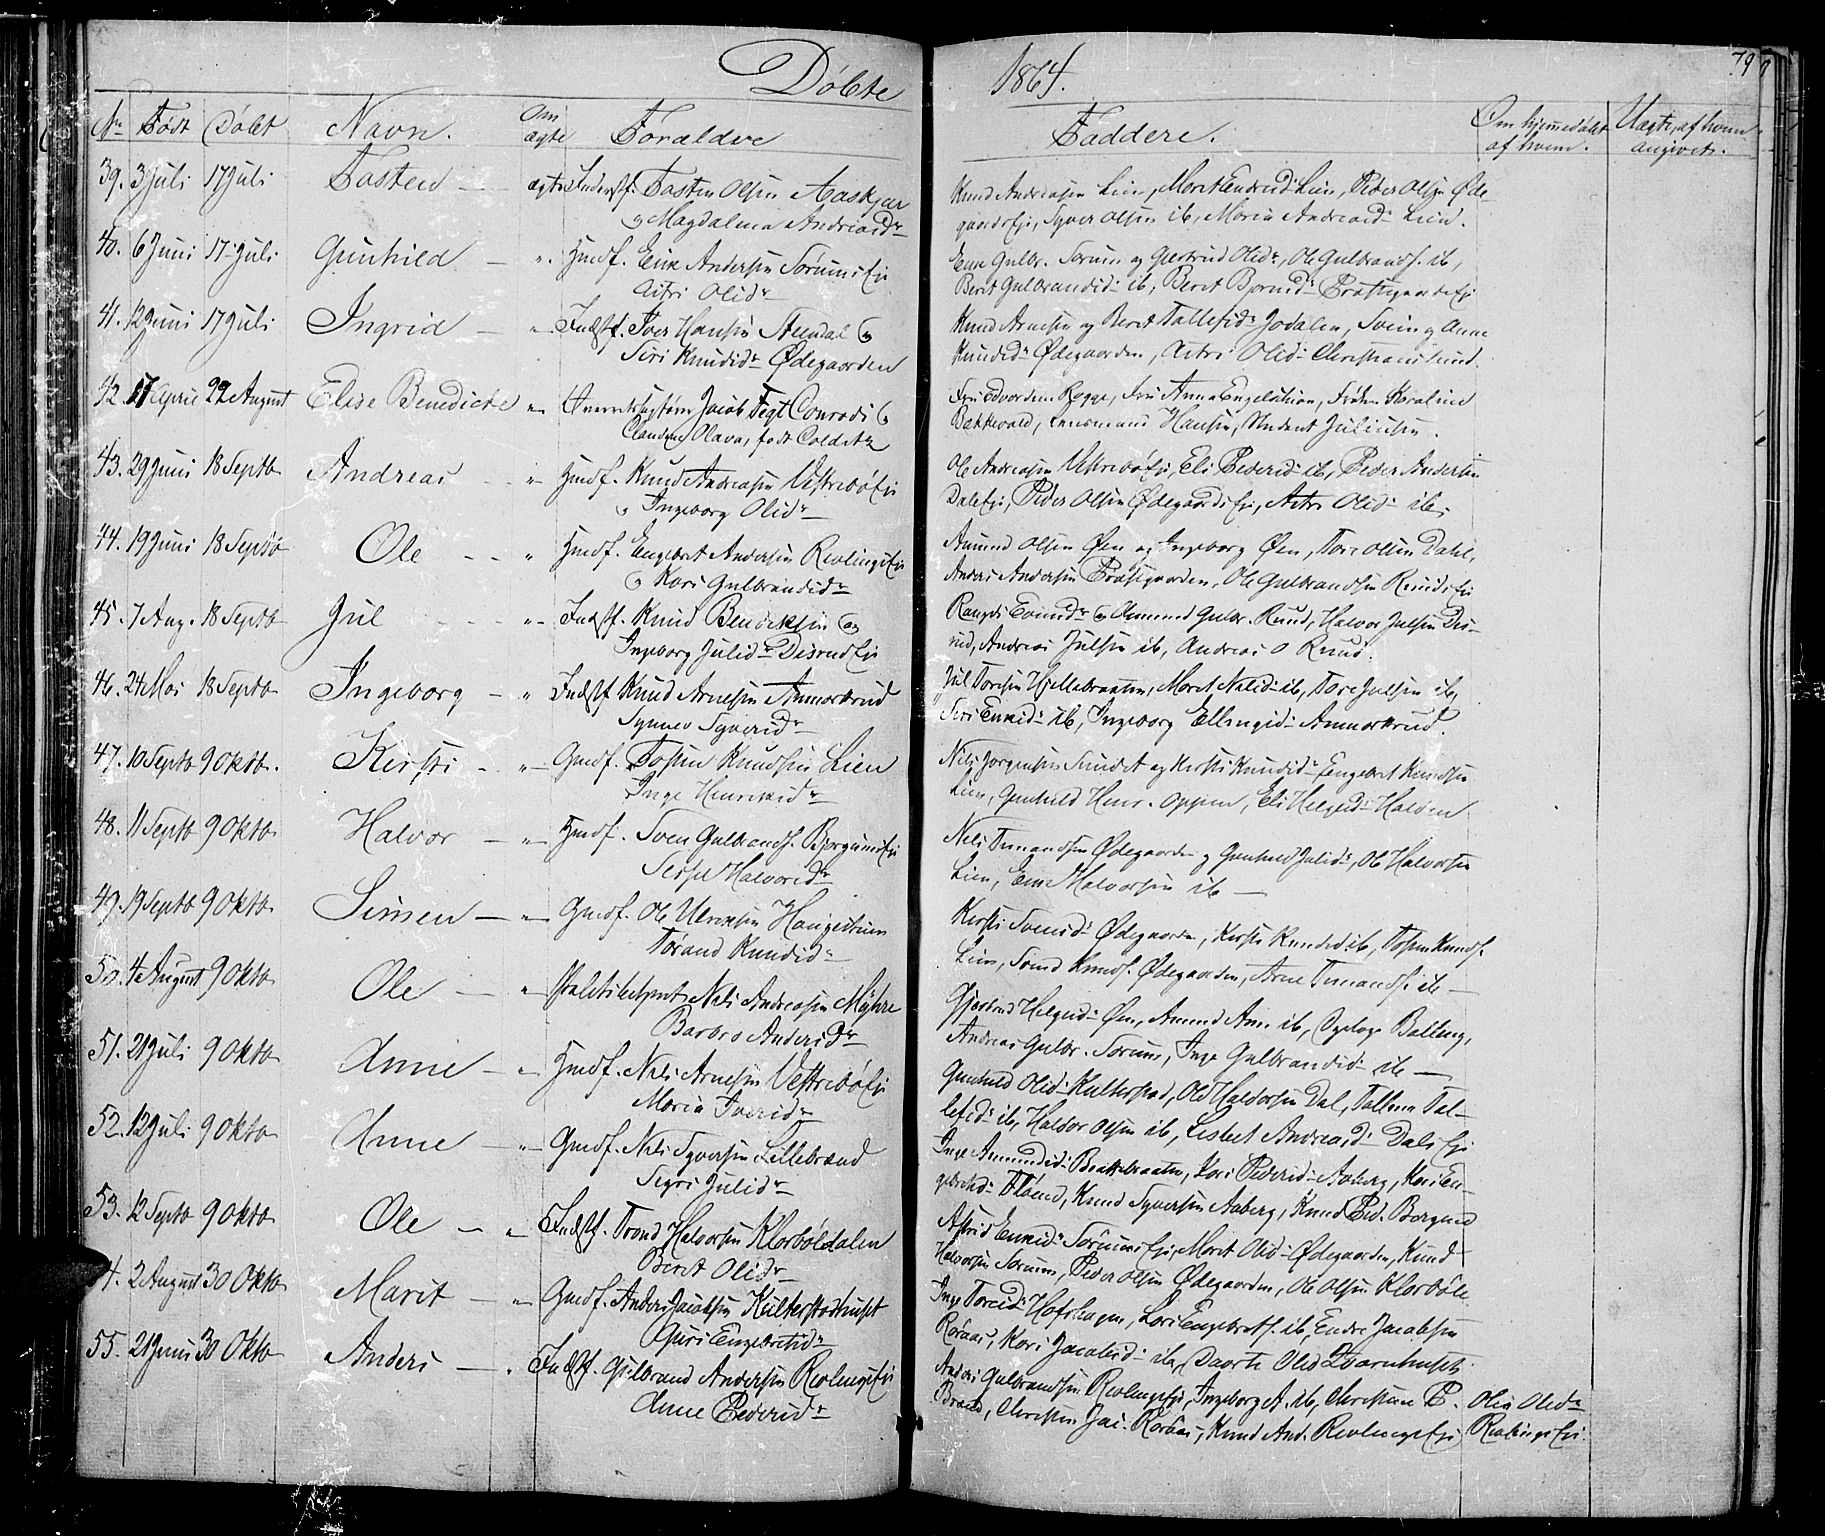 Døbte
1864.
79
No Født Døbt Navn. Om ægte Forældre
Faddere. Om hjemmedøbt af hvem. Uægte, af hvem angivet.
39. 3 Juli 17 Juli Tosten ægte Inderst. Tosten Olsen Aaskjær
og Magdalena Andreasdr
Knud Andreasen Lien, Marit Endresd. Lien, Peder Olsen Øde-
gaards Ei, Syver Olsen ib, Maria Andreasd. Lien.
40. 6 Juni 17 Juli Gunhild " Hmdf. Erik Andersen Sørums Ei
Astri Olsdr
Erik Gulbr. Sørum og Gjertrud Olsdr, Ole Gulbrands. ib,
Berit Gulbrandsd. ib, Berit Bjørnsd. Præstgaards Ei
41. 12 Juni 17 Juli Ingrid " Indst. Iver Hansen Steendal og
Siri Knudsdr Ødegaarden
Knud Arnesen og Berit Tollefsdr Jodalen, Svein og Anne
Knudsdr Ødegaarden, Astri Olsd. Christiansund.
42. 17 April 22 August Elise Benedicte " Overretssagfører Jacob Vogt Conradi og
Claudine Olava, født Colditz
Fru Anna Engelschiøn, Frøken Karoline
Bakkevold, Lensmand Hansen, Student Juliussen.
43. 29 Juni 18 Septb Andreas " Hmdf. Knud Andreasen Vestrebø Ei
og Ingeborg Olsdr
Ole Andreasen Vestrebø Ei, Eli Pedersd. ib, Peder Andersen
Dale Ei, Peder Olsen Ødegaards Ei, Astri Olsd. ib.
44. 19 Juni 18 Septb Ole " Hmdf. Engebret Andersen Revlings Ei
og Kari Gulbrandsdr
Amund Olsen Øen og Ingeborg Øen, Tore Olsen Dahl,
Anders Andersen Præstgaarden, Ole Gulbrandsen Ruuds Ei
45. 7 Aug. 18 Septb Jul " Indst. Knud Bendiksen og
Ingeborg Julsdr Disrud Ei
og Amund Gulbr. Ruud, Halvor Julsen Dis-
rud, Andreas Julsen ib, Andreas O Ruud.
46. 24 Mai 18 Septb Ingeborg " Indst Knud Arnesen Ammorkrud
Synnev Syversdr
Jul Toresen Hjellebraaten, Marit Nilsd. ib, Tore Julsen ib,
Siri Eriksd. ib, Ingeborg Ellingsd. Ammorkrud.
47. 10 Septb 9 Oktb. Kirsti " Gmdf. Tosten Knudsen Lien
Inge Henriksdr
Nils Jørgensen Sundet og Kirsti Knudsd. Engebret Knudsen
Lien, Gunhild Henr. Oppen, Eli Helgesd. Halden
48. 11 Septb 9 Oktb. Halvor " Hmdf. Sven Gulbrands. Bjorgums Ei
Sidsel Halvorsdr
Nils Simundsen Ødegaarden og Gunhild Julsd., Ole Halvorsen
Lien, Erik Halvorsen ib
49. 19 Septb 9 Oktb Simen " Gmdf. Ole Ulriksen Haugestuen
Torand Knudsdr
Kirsti Svensd. Ødegaarden, Kirsti Knudsd. ib, Tosten Knuds.
Lien, Svend Knuds. Ødegaarden, Arne Simunds. ib
50. 4 August 9 Oktb Ole " Nils Andreasen Myhre
Barbro Andersdr
Gjertrud Helgesd. Øen, Amund Am. ib,
Andreas Gulbr. Sørum, Inge Gulbrandsd. ib
51. 21 Juli 9 Oktb Anne " Hmdf. Nils Arnesen Vestrebø Ei
Maria Iversdr
Gunhild Olsd. Kulterstad, Ole Halvorsen Dal, Tal-
lefsd. ib, Halvor Olsen ib, Lisbet Andreasd. Dals Ei
52. 12 Juli 9 Oktb Anne " Gmdf. Nils Syversen Lillebrænd
Sigri Julsdr
Inge Amundsd. Brattebraaten, Kari Pedersd. Aaberg, Kari En-
gebretsd. Fløend, Knud Syversen Aaberg, Knud Ped. Borgund
53. 12 Septb 9 Oktb Ole " Indst. Trond Halvorsen Klosbøledalen
Berit Olsdr
Astrid Eriksd. Sørums Ei, Marit Olsd. Ødegaarden, Knud
Halvorsen Sørum, Peder Olsen Ødegaarden, Ole Olsen Klosbøle
54. 2 August 30 Oktb Marit " Gmdf. Anders Jacobsen Kulterstadhuset
Guri Engebretsdr
Inge Toresd. Hofshagen, Lars Engebrets. ib, Endre Jacobsen
Røraas, Kari Jacobsd. ib, Olsd. Qvarnhuset
55. 21 Juni 30 Oktb Anders " Indst. Gulbrand Andersen Revlings Ei
Anne Pedersdr
Anders Gulbrandsen Revlings Ei, Ingeborg A. ib, Christian P.
Brænd, Christen Jac. Røraas, Knud And. Revlings Ei
Olia Olsdr
Revlings Ei.